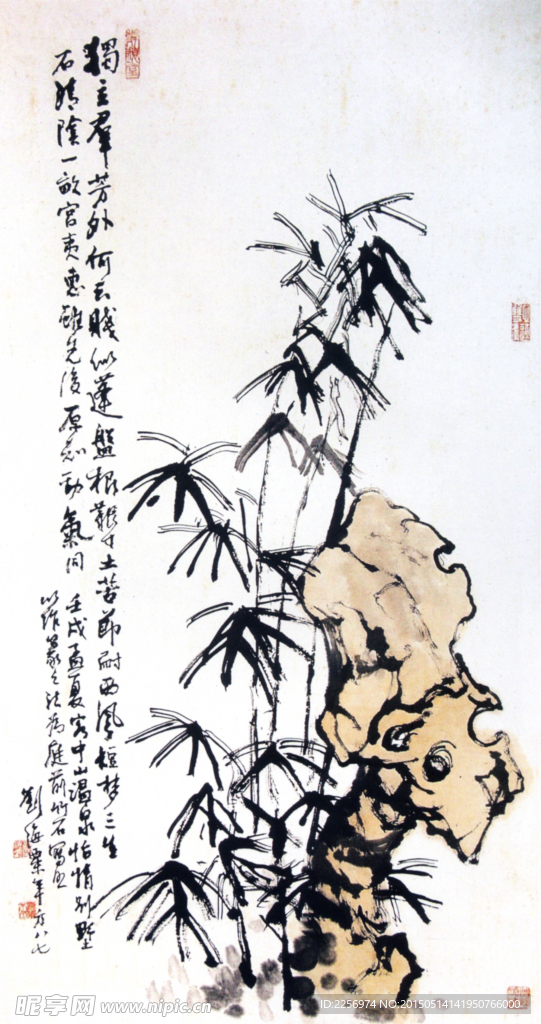 獨立群芳外何云賤似蓬盤根艱寸土苦節耐西風短夢三生
石清陰一畝宮夷惠雖先後原知勁氣同
壬戌孟夏客中山溫泉怡情別墅
以作篆之法為庭前竹石寫照
劉海粟年方八七
昵享网 www.nipic.cn
ID:2256974 NO:20150514141950766000